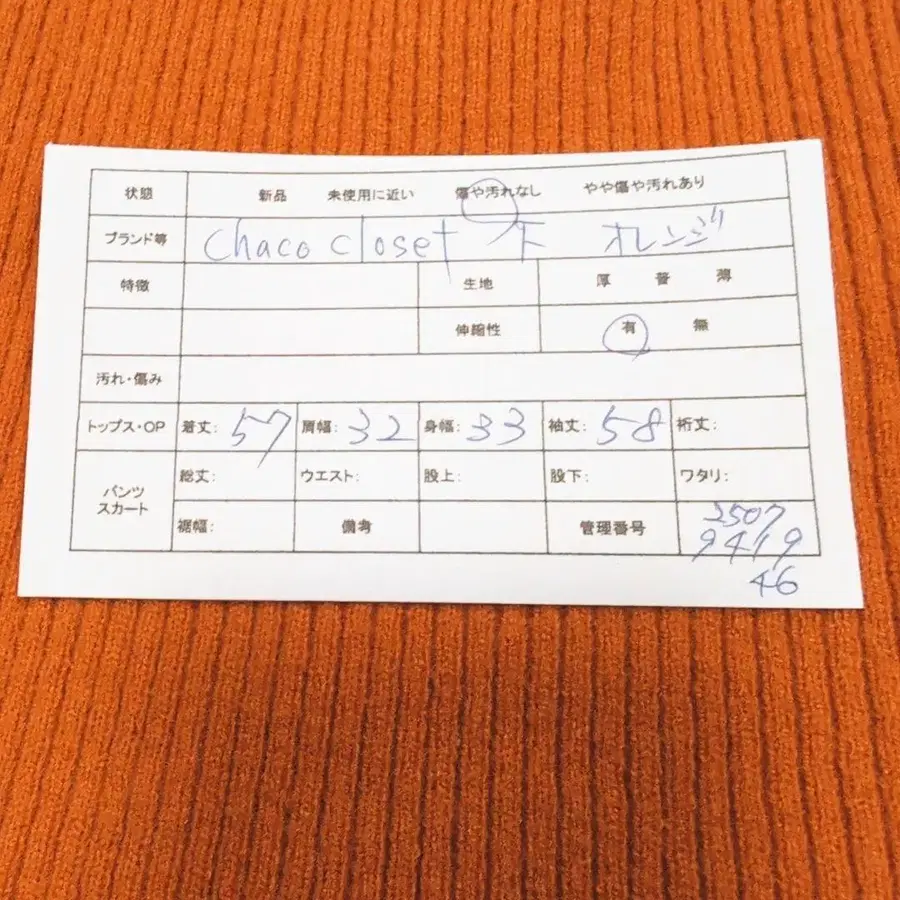 状態 新品 未使用に近い 傷や汚れなし やや傷や汚れあり
ブランド等 chaco closet オレンジ
特徴 生地 厚 普 薄
伸縮性 有 無
汚れ・傷み
トップス・OP 着丈: 57 肩幅: 32 身幅: 33 袖丈: 58 裄丈:
パンツ スカート 総丈: ウエスト: 股上: 股下: ワタリ:
裾幅: 備考 管理番号 2507
9419
46